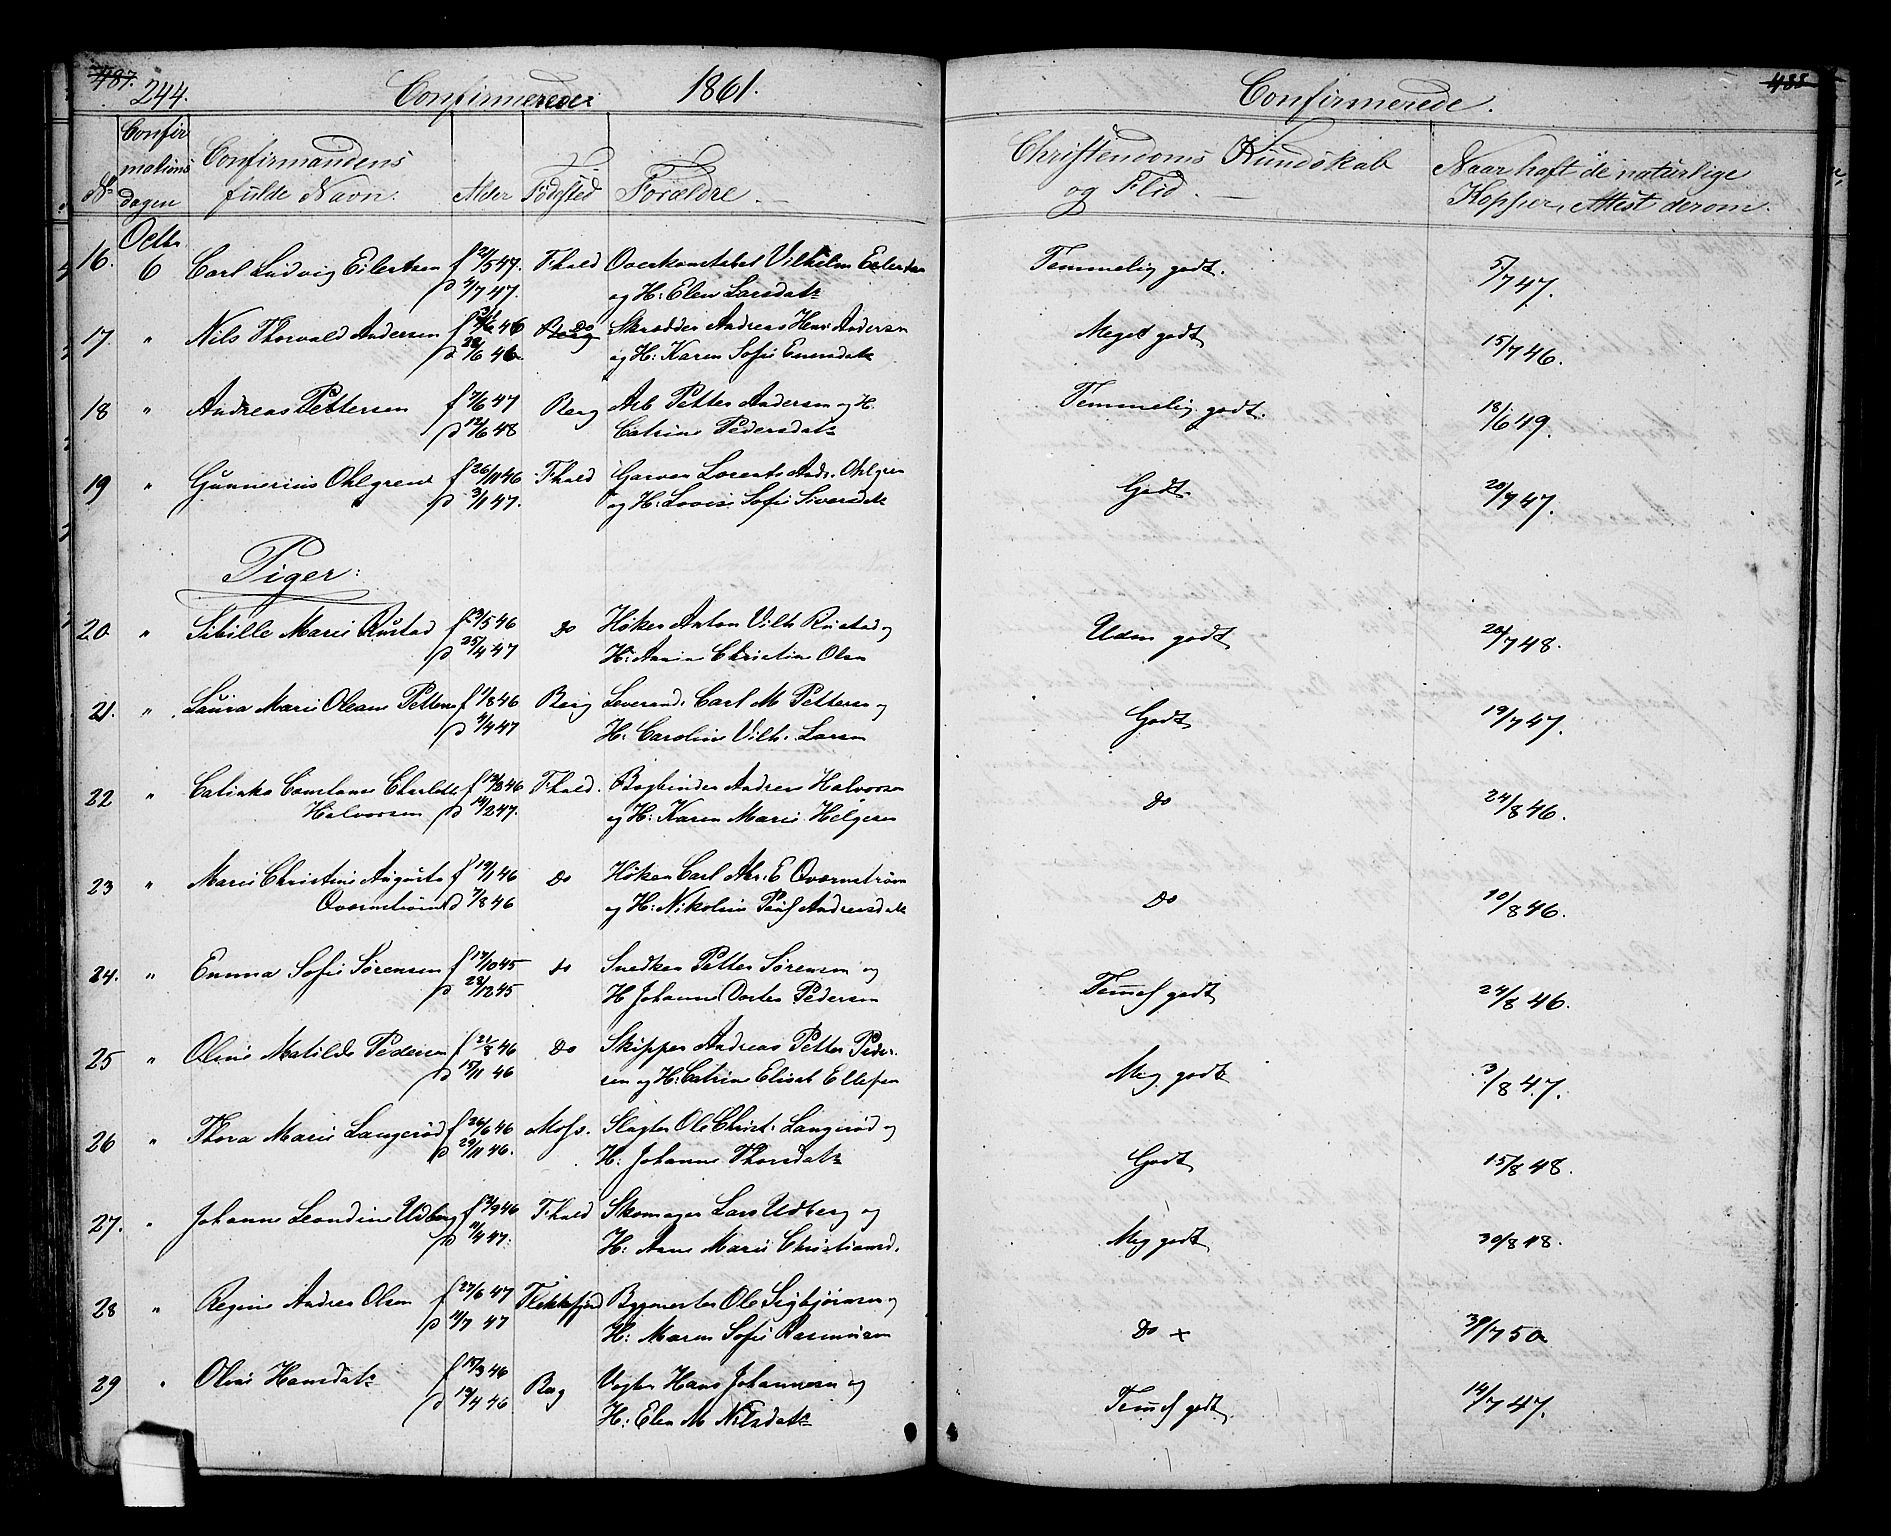 487. 244. Confirmerede 1861.
No Confirmations dagen Confirmandens fulde Navn. Alder Fødested Forældre.
Octbr.
16. 6 Carl Ludvig Eilertsen f 21/5 47. Fhald Overkonstabel Vilhelm Eilertsen
d 4/7 47. og H: Elen Larsdatr
17. " Nils Thorvald Andersen 46 Do Skrædder Andreas Henr Andersen
d 28/6 46 og H: Karen Sofie Evensdatr
18 " Andreas Pettersen f 7/6 47 Berg Arb Petter Andersen og H.
d 12/6 48 Catrine Pedersdatr
19 " Gunnerius Ohlgren f 26/11 46 Fhald Garver Lorents Andr. Ohlgren
d 3/1 47. og H: Lovise Sofie Siversdatr
Piger:
20 " Sibille Marie Rustad f 23/5 46 Do Høker Anton Vilh Rustad og
d 25/4 47 H: Anna Christine Olsen
21. " Laura Marie Oleane Petters f 11/8 46 Berg Leverand. Carl M Petters og
d 4/4 47 H: Caroline Vilh. Larsen
22 " Catinka Constance Charlotte f 12/8 46 Fhald. Bogbinder Andrew Halvorsen
Halvorsen d 14/2 47. og H: Karen Marie Helgesen
23 " Marie Christine Augusta f 19/1 46 Do Høker Carl Abr. E Qvarnstrøm
Qvarnstrøm d 7/8 46 og H: Nikoline Andreasdatr
24. " Emma Sofie Sørensen f 17/10 45 do Snedker Petter Sørensen og
d 28/12 45 H Johanne Dortea Pedersen
25 " Oline Matilde Pedersen f 21/8 46 Do Skipper Andreas Petter Peder-
d 15/11 46 sen og H: Catrine Elisab Ellefsen
26 " Thora Marie Langerød f 26/6 46 Moss. Slagter Ole Christ. Langerød og
d 29/11 46. H: Johanne Thorsdatr
27. " Johanne Leondine Udberg f 2/9 46 Fhald Skomager Lars Udberg og
d 11/4 47. H: Anne Marie Christiansd.
28 " Regine Andrea Olsen f 27/6 47 Flekkefjord Bygmester Ole Sigbjørnsen og
d 11/7 47 H: Maren Sofie Rasmussen
29 " Oline Hansdatr f 15/3 46 Berg Vogter Hans Johannesen og
d 19/4 46 H: Elen M Nilsdatr
Confirmerede. 488
Christendoms Kundskab og Flid. Naar haft de naturlige Kopper, Attest derom.
Temmelig godt. 5/7 47.
Meget godt 15/7 46.
Temmelig godt. 18/6 49.
Godt. 20/9 47.
Udm godt 20/7 48.
Godt 19/7 47.
Do 24/8 46.
Do 10/8 46.
Temel godt 24/8 46.
Meg godt 3/8 47.
Godt 15/8 48.
Meg godt 30/8 48.
Do x 30/7 50
Temel godt. 14/7 47.